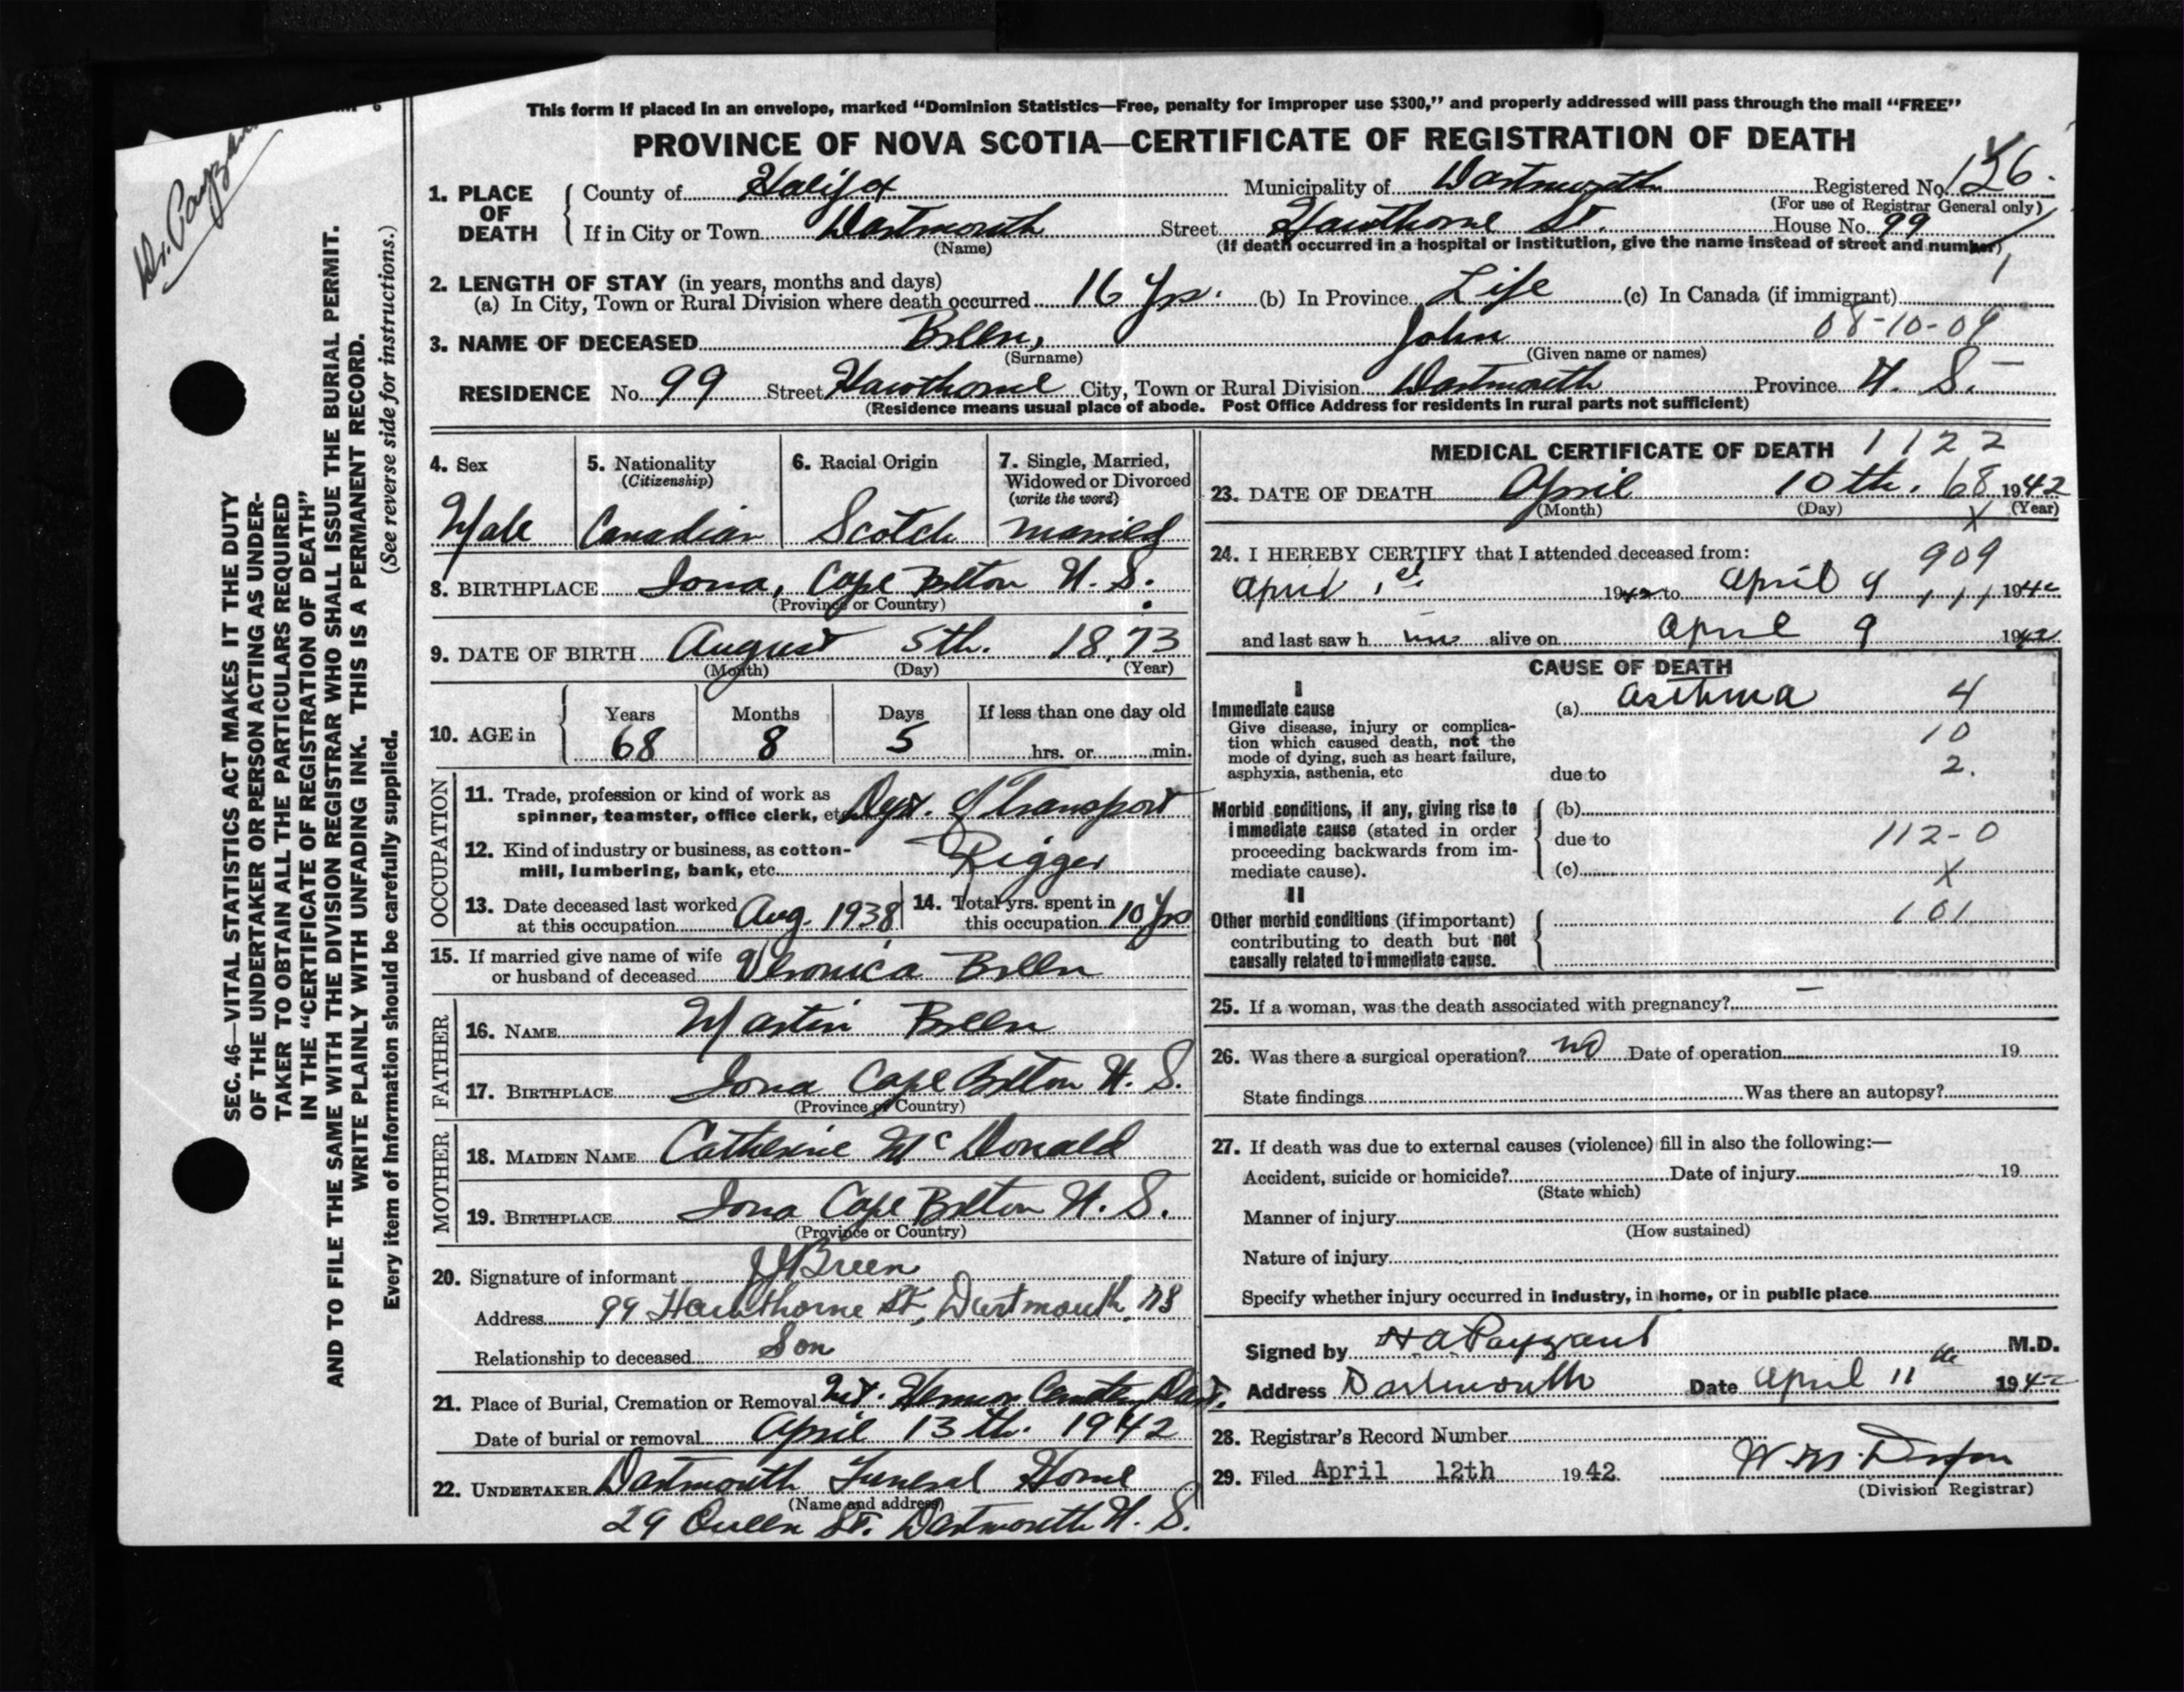 Dr. Payzant
This form if placed in an envelope, marked “Dominion Statistics—Free, penalty for improper use $300,” and properly addressed will pass through the mail “FREE”
PROVINCE OF NOVA SCOTIA—CERTIFICATE OF REGISTRATION OF DEATH
1. PLACE OF DEATH
County of Halifax Municipality of Dartmouth Registered No. 126
(For use of Registrar General only)
If in City or Town Dartmouth Street Hawthorne St. House No. 99
(Name) (If death occurred in a hospital or institution, give the name instead of street and number)
2. LENGTH OF STAY (in years, months and days)
(a) In City, Town or Rural Division where death occurred 16 Yrs. (b) In Province Life (c) In Canada (if immigrant)
08-10-09
3. NAME OF DECEASED Breen, John
(Surname) (Given name or names)
RESIDENCE No. 99 Street Hawthorne City, Town or Rural Division Dartmouth Province N. S.
(Residence means usual place of abode. Post Office Address for residents in rural parts not sufficient)
4. Sex
Male
5. Nationality
(Citizenship)
Canadian
6. Racial Origin
Scotch
7. Single, Married,
Widowed or Divorced
(write the word)
Married
8. BIRTHPLACE Iona, Cape Breton N. S.
(Province or Country)
9. DATE OF BIRTH August 5th. 1873
(Month) (Day) (Year)
10. AGE in
Years Months Days If less than one day old
68 8 5 hrs. or min.
OCCUPATION
11. Trade, profession or kind of work as
spinner, teamster, office clerk, etc. Dept. of Transport
12. Kind of industry or business, as cotton-
mill, lumbering, bank, etc. Rigger
13. Date deceased last worked
at this occupation Aug. 1938
14. Total yrs. spent in
this occupation 10 Yrs
15. If married give name of wife
or husband of deceased Veronica Breen
FATHER
16. NAME Martin Breen
17. BIRTHPLACE Iona Cape Breton N. S.
(Province or Country)
MOTHER
18. MAIDEN NAME Catherine McDonald
19. BIRTHPLACE Iona Cape Breton N. S.
(Province or Country)
20. Signature of informant J J Breen
Address 99 Hawthorne St, Dartmouth, NS
Relationship to deceased Son
21. Place of Burial, Cremation or Removal Mt. Hermon Cemetery Dart.
Date of burial or removal April 13th. 1942
22. UNDERTAKER Dartmouth Funeral Home
(Name and address)
29 Queen St. Dartmouth N. S.
MEDICAL CERTIFICATE OF DEATH 1122
23. DATE OF DEATH April 10th. 68 1942
(Month) (Day) (Year)
X
24. I HEREBY CERTIFY that I attended deceased from:
909
April 1st 1942 to April 9 1942
and last saw him alive on April 9 1942
CAUSE OF DEATH
I
Immediate cause
Give disease, injury or complica-
tion which caused death, not the
mode of dying, such as heart failure,
asphyxia, asthenia, etc
(a) Asthma 4
10
due to 2.
Morbid conditions, if any, giving rise to
immediate cause (stated in order
proceeding backwards from im-
mediate cause).
(b)
due to 112-0
(c) X
II
Other morbid conditions (if important)
contributing to death but not
causally related to immediate cause.
101
25. If a woman, was the death associated with pregnancy? —
26. Was there a surgical operation? no Date of operation 19
State findings Was there an autopsy?
27. If death was due to external causes (violence) fill in also the following:—
Accident, suicide or homicide? Date of injury 19
(State which)
Manner of injury
(How sustained)
Nature of injury
Specify whether injury occurred in industry, in home, or in public place
Signed by H. A. Payzant M.D.
Address Dartmouth Date April 11th 1942
28. Registrar's Record Number
29. Filed April 12th 1942.
(Division Registrar)
SEC. 46—VITAL STATISTICS ACT MAKES IT THE DUTY
OF THE UNDERTAKER OR PERSON ACTING AS UNDER-
TAKER TO OBTAIN ALL THE PARTICULARS REQUIRED
IN THE “CERTIFICATE OF REGISTRATION OF DEATH”
AND TO FILE THE SAME WITH THE DIVISION REGISTRAR WHO SHALL ISSUE THE BURIAL PERMIT.
WRITE PLAINLY WITH UNFADING INK. THIS IS A PERMANENT RECORD.
Every item of information should be carefully supplied. (See reverse side for instructions.)